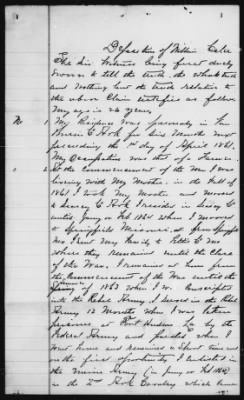 Deposition of William Cake
The dix Witness being first duly
sworn to tell the truth, the whole truth
and nothing but the truth relative to
the above Claim testifies as follows
My age is 24 years,
No 1 My Residence was formerly in
County Ark for Six Months next
preceeding the 1st day of April 1861.
My Occupation was that of a Farmer.
2 At the Commencement of the War I was
living with My Mother, in the Fall of
1861 I took My Mother and moved
to Searcy Co Ark I resided in Searcy Co
until Jany or Feb 1864 when I moved
to Springfield Missouri, & from Springfield
Mo. I sent My Family to Pettis Co Mo
where they remained until the close
of the War. I remained at home from
the Commencement of the War until the
Spring of 1863 when I w. Conscripted
into the Rebel Army I served in the Rebel
Army 12 Months when I was taken
prisoner at Port Hudson La by the
Federal Army and parolled when I
went home and remained a short time and
on the first opportunity I enlisted in
the Union Army (in Jany or Feb 1864)
in the 2nd Ark Cavalry which